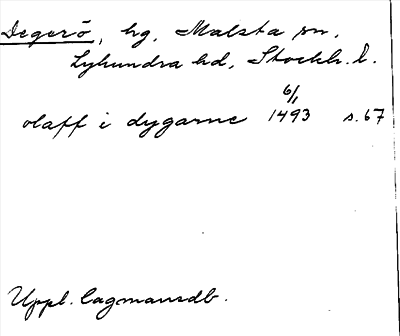 Degerö, hg, Malsta sn,
Lyhundra hd, Stockh. l.
6/1
olaff i dygarne 1493 s. 67
Uppl. lagmansdb.